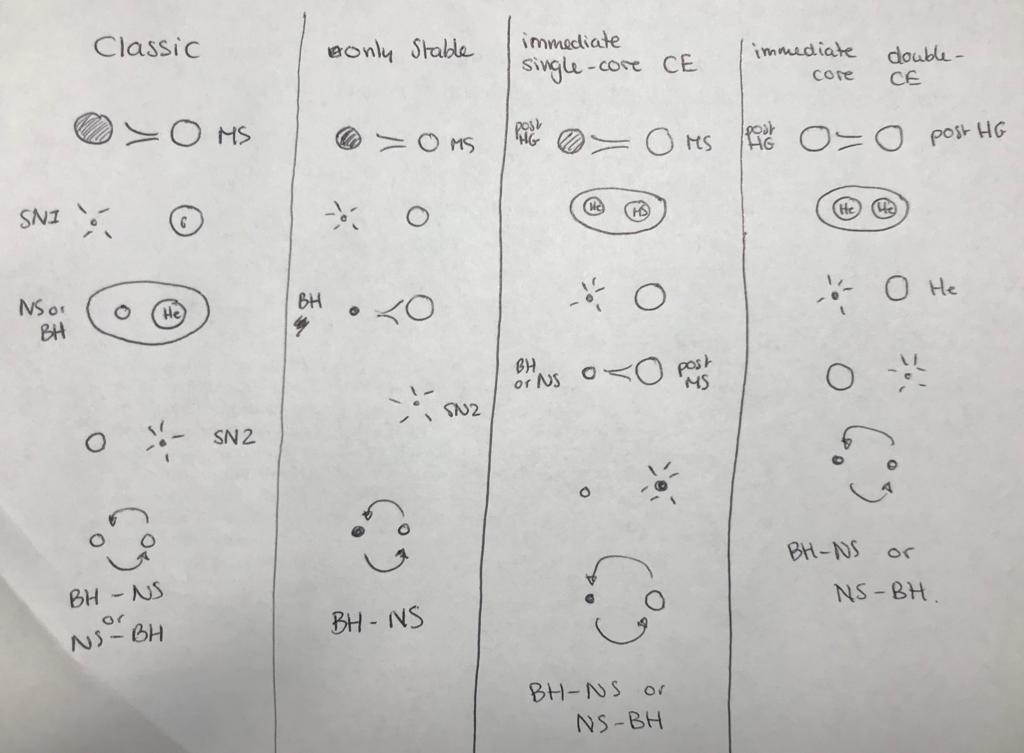 Classic
MS
SN1
G
NS or
BH
He
SN2
BH - NS
or
NS - BH
only Stable
MS
BH
SN2
BH - NS
immediate
single-core CE
post
HG
MS
He
MS
BH
or NS
post
MS
BH-NS or
NS-BH
immediate double-
core CE
post
HG
post HG
He
He
He
BH-NS or
NS-BH.